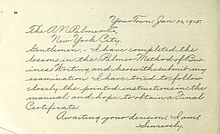 Your Town, Jan. 30, 1915.
The A. N. Palmer Co.
New York City,
Gentlemen:- I have completed the
lessons in the Palmer Method of Bus-
iness Writing and herewith submit my
examination. I have tried to follow
closely the printed instructions in the
manual, and hope to obtain a Final
Certificate.
Awaiting your decision, I am
Sincerely,